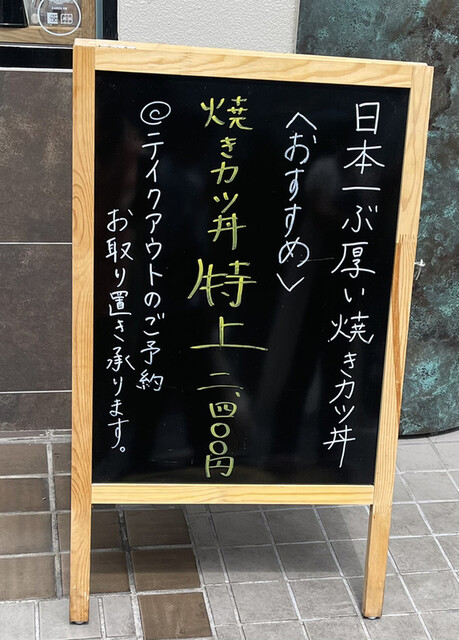 日本一ぶ厚い焼きカツ丼
〈おすすめ〉
焼きカツ丼 特上 二、四〇〇円
◎テイクアウトのご予約
お取り置き承ります。